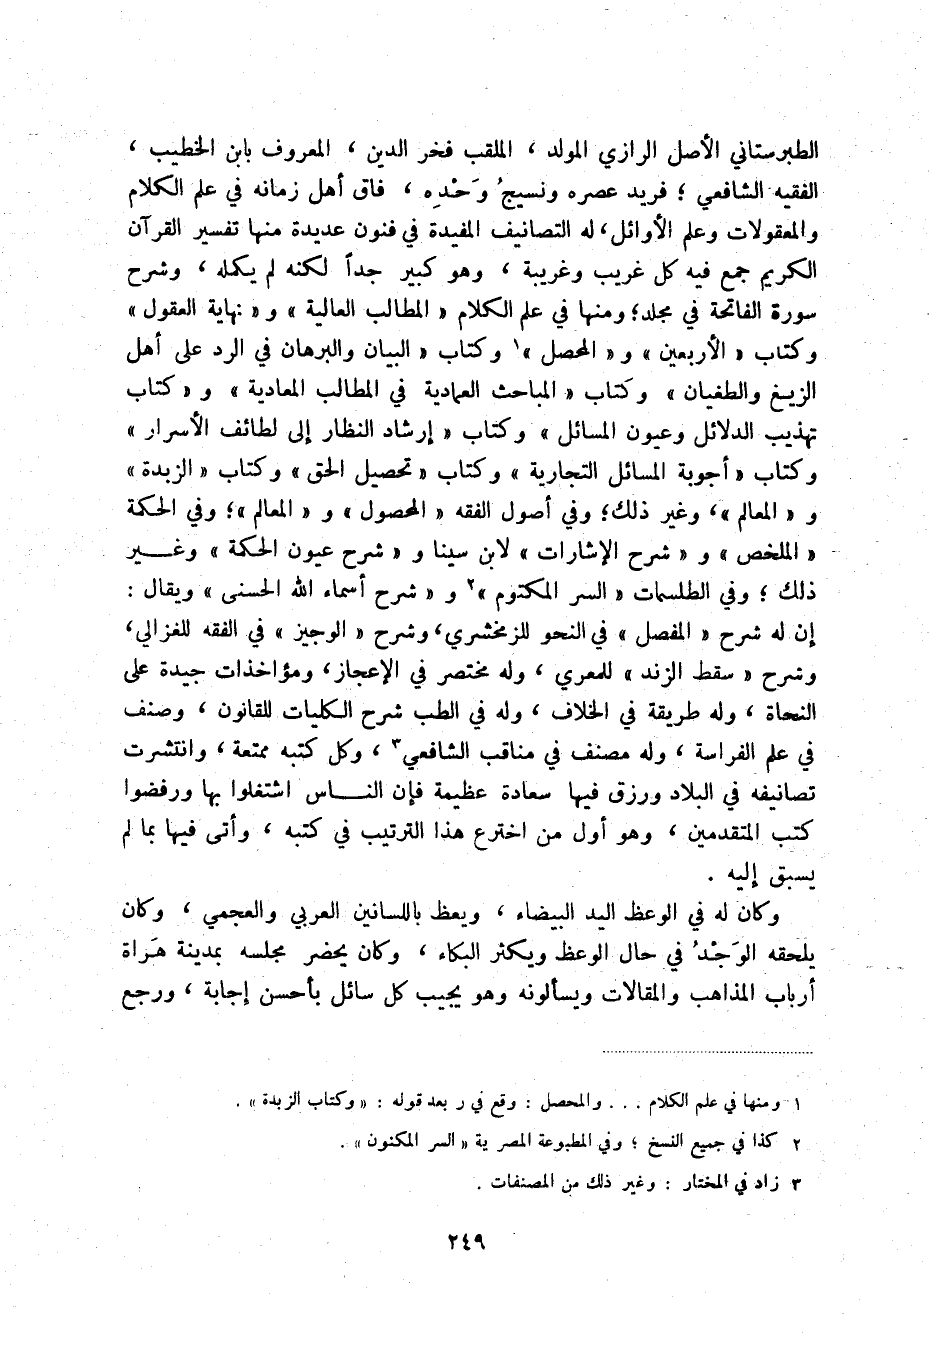 الطبرستاني الأصل الرازي المولد ، الملقب فخر الدين ، المعروف بابن الخطيب ،
الفقيه الشافعي ؛ فريد عصره ونسيجُ وَحْدِه ، فاق أهل زمانه في علم الكلام
والمعقولات وعلم الأوائل، له التصانيف المفيدة في فنون عديدة منها تفسير القرآن
الكريم جمع فيه كل غريب وغريبة ، وهو كبير جداً لكنه لم يكمله ، وشرح
سورة الفاتحة في مجلد؛ ومنها في علم الكلام « المطالب العالية » و « نهاية العقول »
وكتاب « الأربعين » و « المحصل »١ وكتاب « البيان والبرهان في الرد على أهل
الزيغ والطغيان » وكتاب « المباحث العمادية في المطالب المعادية » و « كتاب
تهذيب الدلائل وعيون المسائل » وكتاب « إرشاد النظار إلى لطائف الأسرار »
وكتاب « أجوبة المسائل التجارية » وكتاب « تحصيل الحق » وكتاب « الزبدة »
و « المعالم »، وغير ذلك؛ وفي أصول الفقه « المحصول » و « المعالم »؛ وفي الحكمة
« الملخص » و « شرح الإشارات » لابن سينا و « شرح عيون الحكمة » وغـــير
ذلك ؛ وفي الطلسمات « السر المكتوم »٢ و « شرح أسماء الله الحسنى » ويقال :
إن له شرح « المفصل » في النحو للزمخشري، وشرح « الوجيز » في الفقه للغزالي،
وشرح « سقط الزند » للمعري ، وله مختصر في الإعجاز، ومؤاخذات جيدة على
النحاة ، وله طريقة في الخلاف ، وله في الطب شرح الكليات للقانون ، وصنف
في علم الفراسة ، وله مصنف في مناقب الشافعي٣ ، وكل كتبه ممتعة ، وانتشرت
تصانيفه في البلاد ورزق فيها سعادة عظيمة فإن النـــاس اشتغلوا بها ورفضوا
كتب المتقدمين ، وهو أول من اخترع هذا الترتيب في كتبه ، وأتى فيها بما لم
يسبق إليه .
وكان له في الوعظ اليد البيضاء ، ويعظ باللسانين العربي والعجمي ، وكان
يلحقه الوَجْدُ في حال الوعظ ويكثر البكاء ، وكان يحضر مجلسه بمدينة هَراة
أرباب المذاهب والمقالات ويسألونه وهو يجيب كل سائل بأحسن إجابة ، ورجع
١ ومنها في علم الكلام . . . والمحصل : وقع في ر بعد قوله : « وكتاب الزبدة » .
٢ كذا في جميع النسخ ؛ وفي المطبوعة المصرية « السر المكنون » .
٣ زاد في المختار : وغير ذلك من المصنفات .
٢٤٩